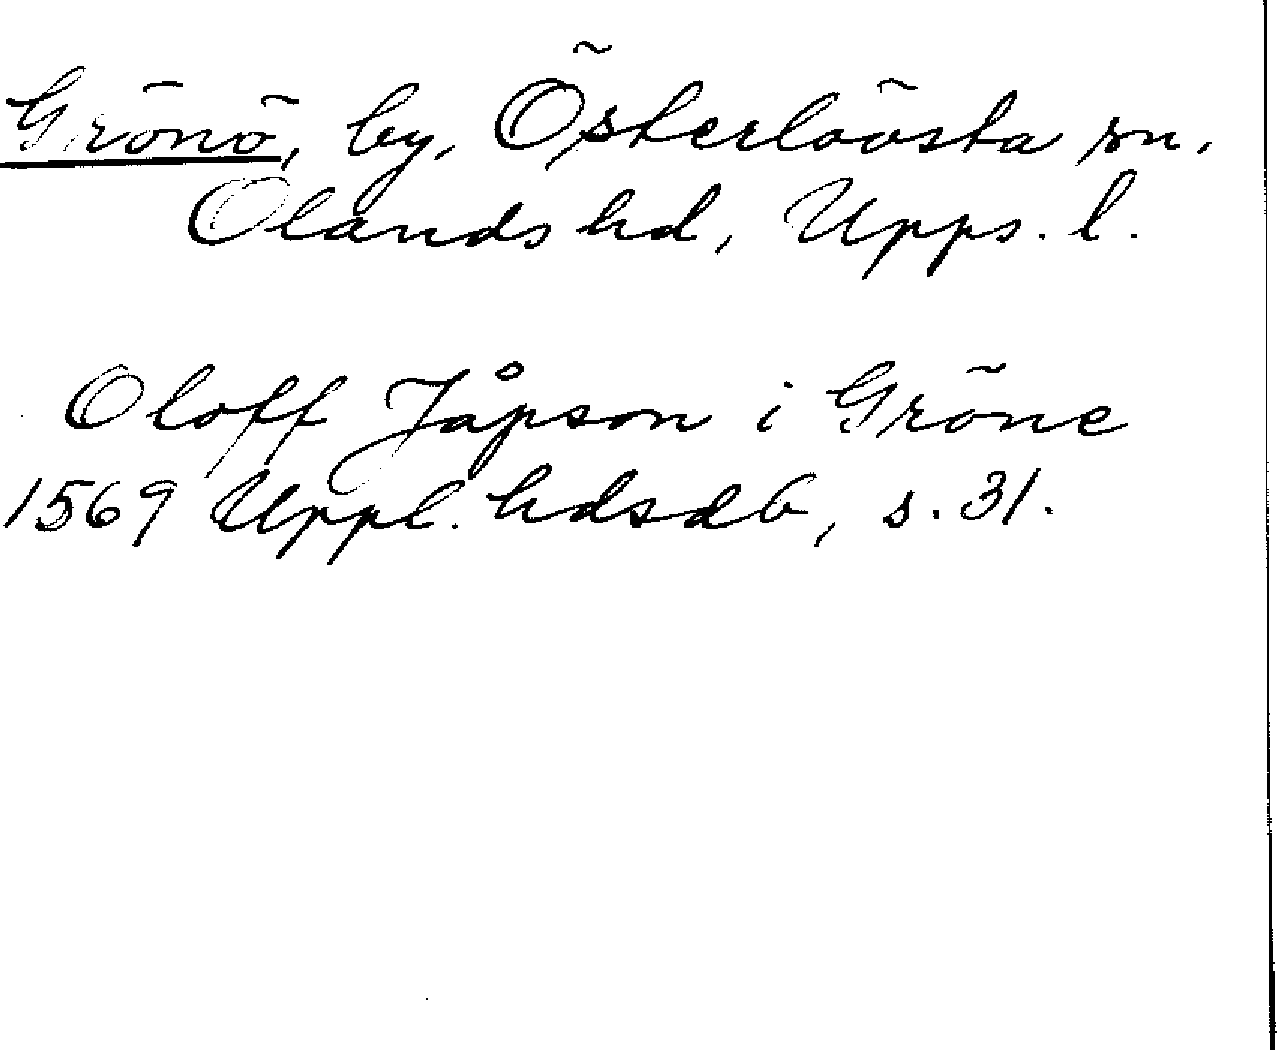 Grönö, by, Österlövsta sn,
Olands hd, Upps. l.
Oloff Jåpson i Gröne
1569 Uppl. hdsdb, s. 31.